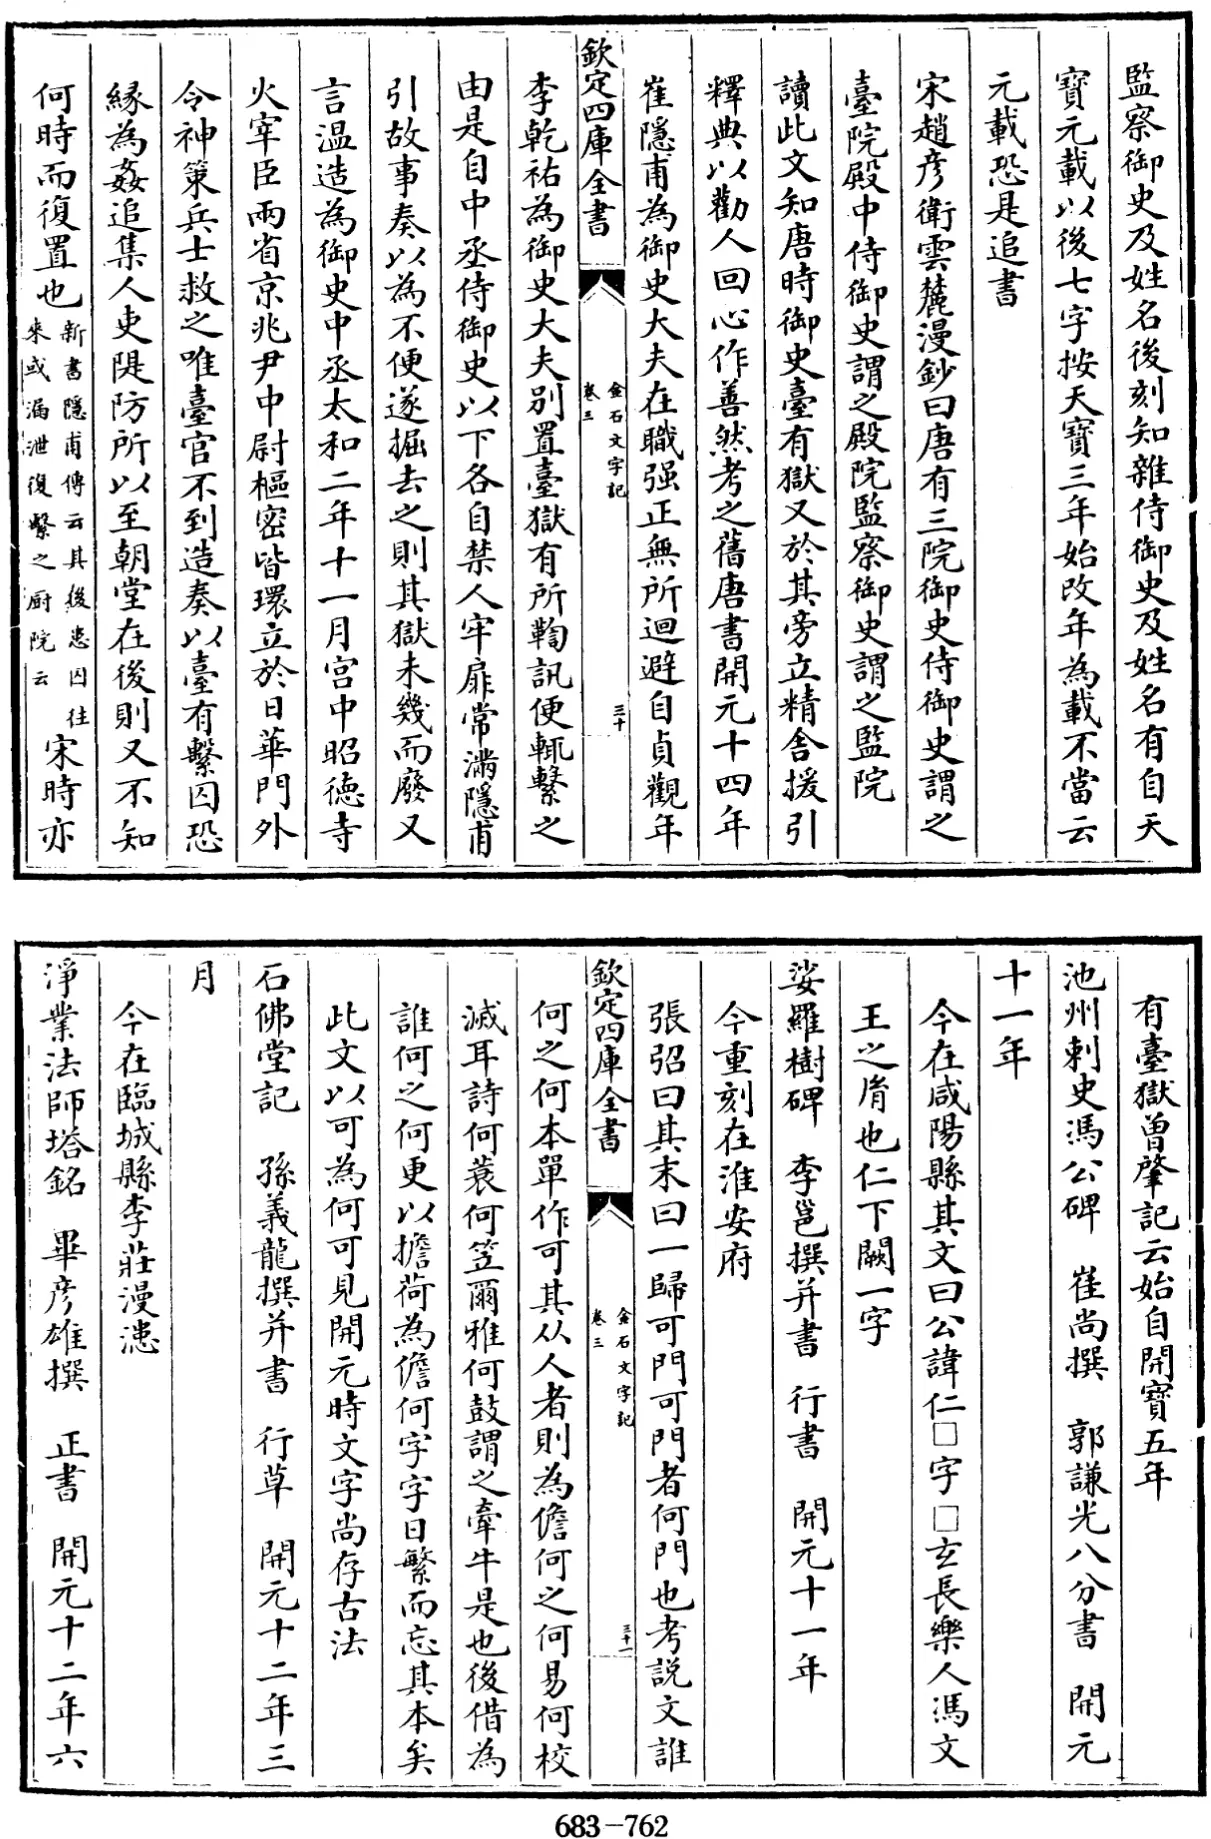 監察御史及姓名後刻知雜侍御史及姓名有自天
寳元載以後七字按天寳三年始改年為載不當云
元載恐是追書
宋趙彦衛雲麓漫鈔曰唐有三院御史侍御史謂之
臺院殿中侍御史謂之殿院監察御史謂之監院
讀此文知唐時御史臺有獄又於其旁立精舎援引
釋典以勸人回心作善然考之舊唐書開元十四年
崔隠甫為御史大夫在職强正無所迴避自貞觀年
欽定四庫全書
金石文字記
卷三
三十
李乾祐為御史大夫别置臺獄有所鞫訊便輒繫之
由是自中丞侍御史以下各自禁人牢扉常滿隠甫
引故事奏以為不便遂掘去之則其獄未幾而廢又
言温造為御史中丞太和二年十一月宫中昭徳寺
火宰臣兩省京兆尹中尉樞密皆環立於日華門外
令神策兵士救之唯臺官不到造奏以臺有繫囚恐
緣為姦追集人吏隄防所以至朝堂在後則又不知
何時而復置也
新書隠甫傳云其後患囚往
來或漏泄復繫之厨院云
宋時亦
有臺獄曾肇記云始自開寳五年
池州刺史馮公碑　崔尚撰　郭謙光八分書　開元
十一年
今在咸陽縣其文曰公諱仁□字□玄長樂人馮文
王之㣧也仁下闕一字
娑羅樹碑　李邕撰并書　行書　開元十一年
今重刻在淮安府
張弨曰其末曰一歸可門可門者何門也考説文誰
欽定四庫全書
金石文字記
卷三
三十一
何之何本單作可其从人者則為儋何之何易何校
滅耳詩何蓑何笠爾雅何鼓謂之牽牛是也後借為
誰何之何更以擔荷為儋何字字日繁而忘其本矣
此文以可為何可見開元時文字尚存古法
石佛堂記　孫義龍撰并書　行草　開元十二年三
月
今在臨城縣李莊漫漶
淨業法師塔銘　畢彦雄撰　正書　開元十二年六
683-762